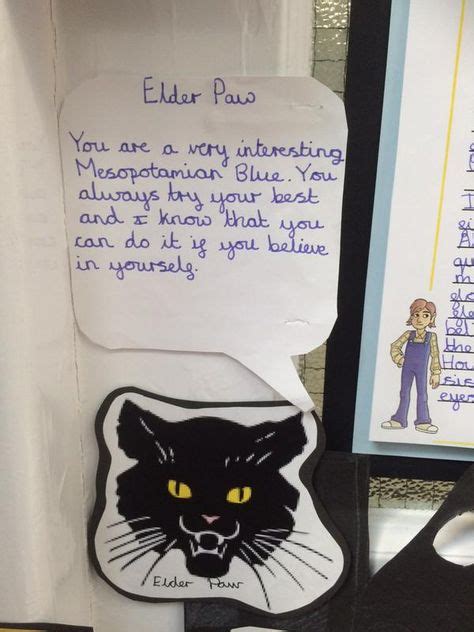 Elder Paw
You are a very interesting
Mesopotamian Blue. You
always try your best
and I know that you
can do it if you believe
in yourself.
Elder Paw
the
How
eyes